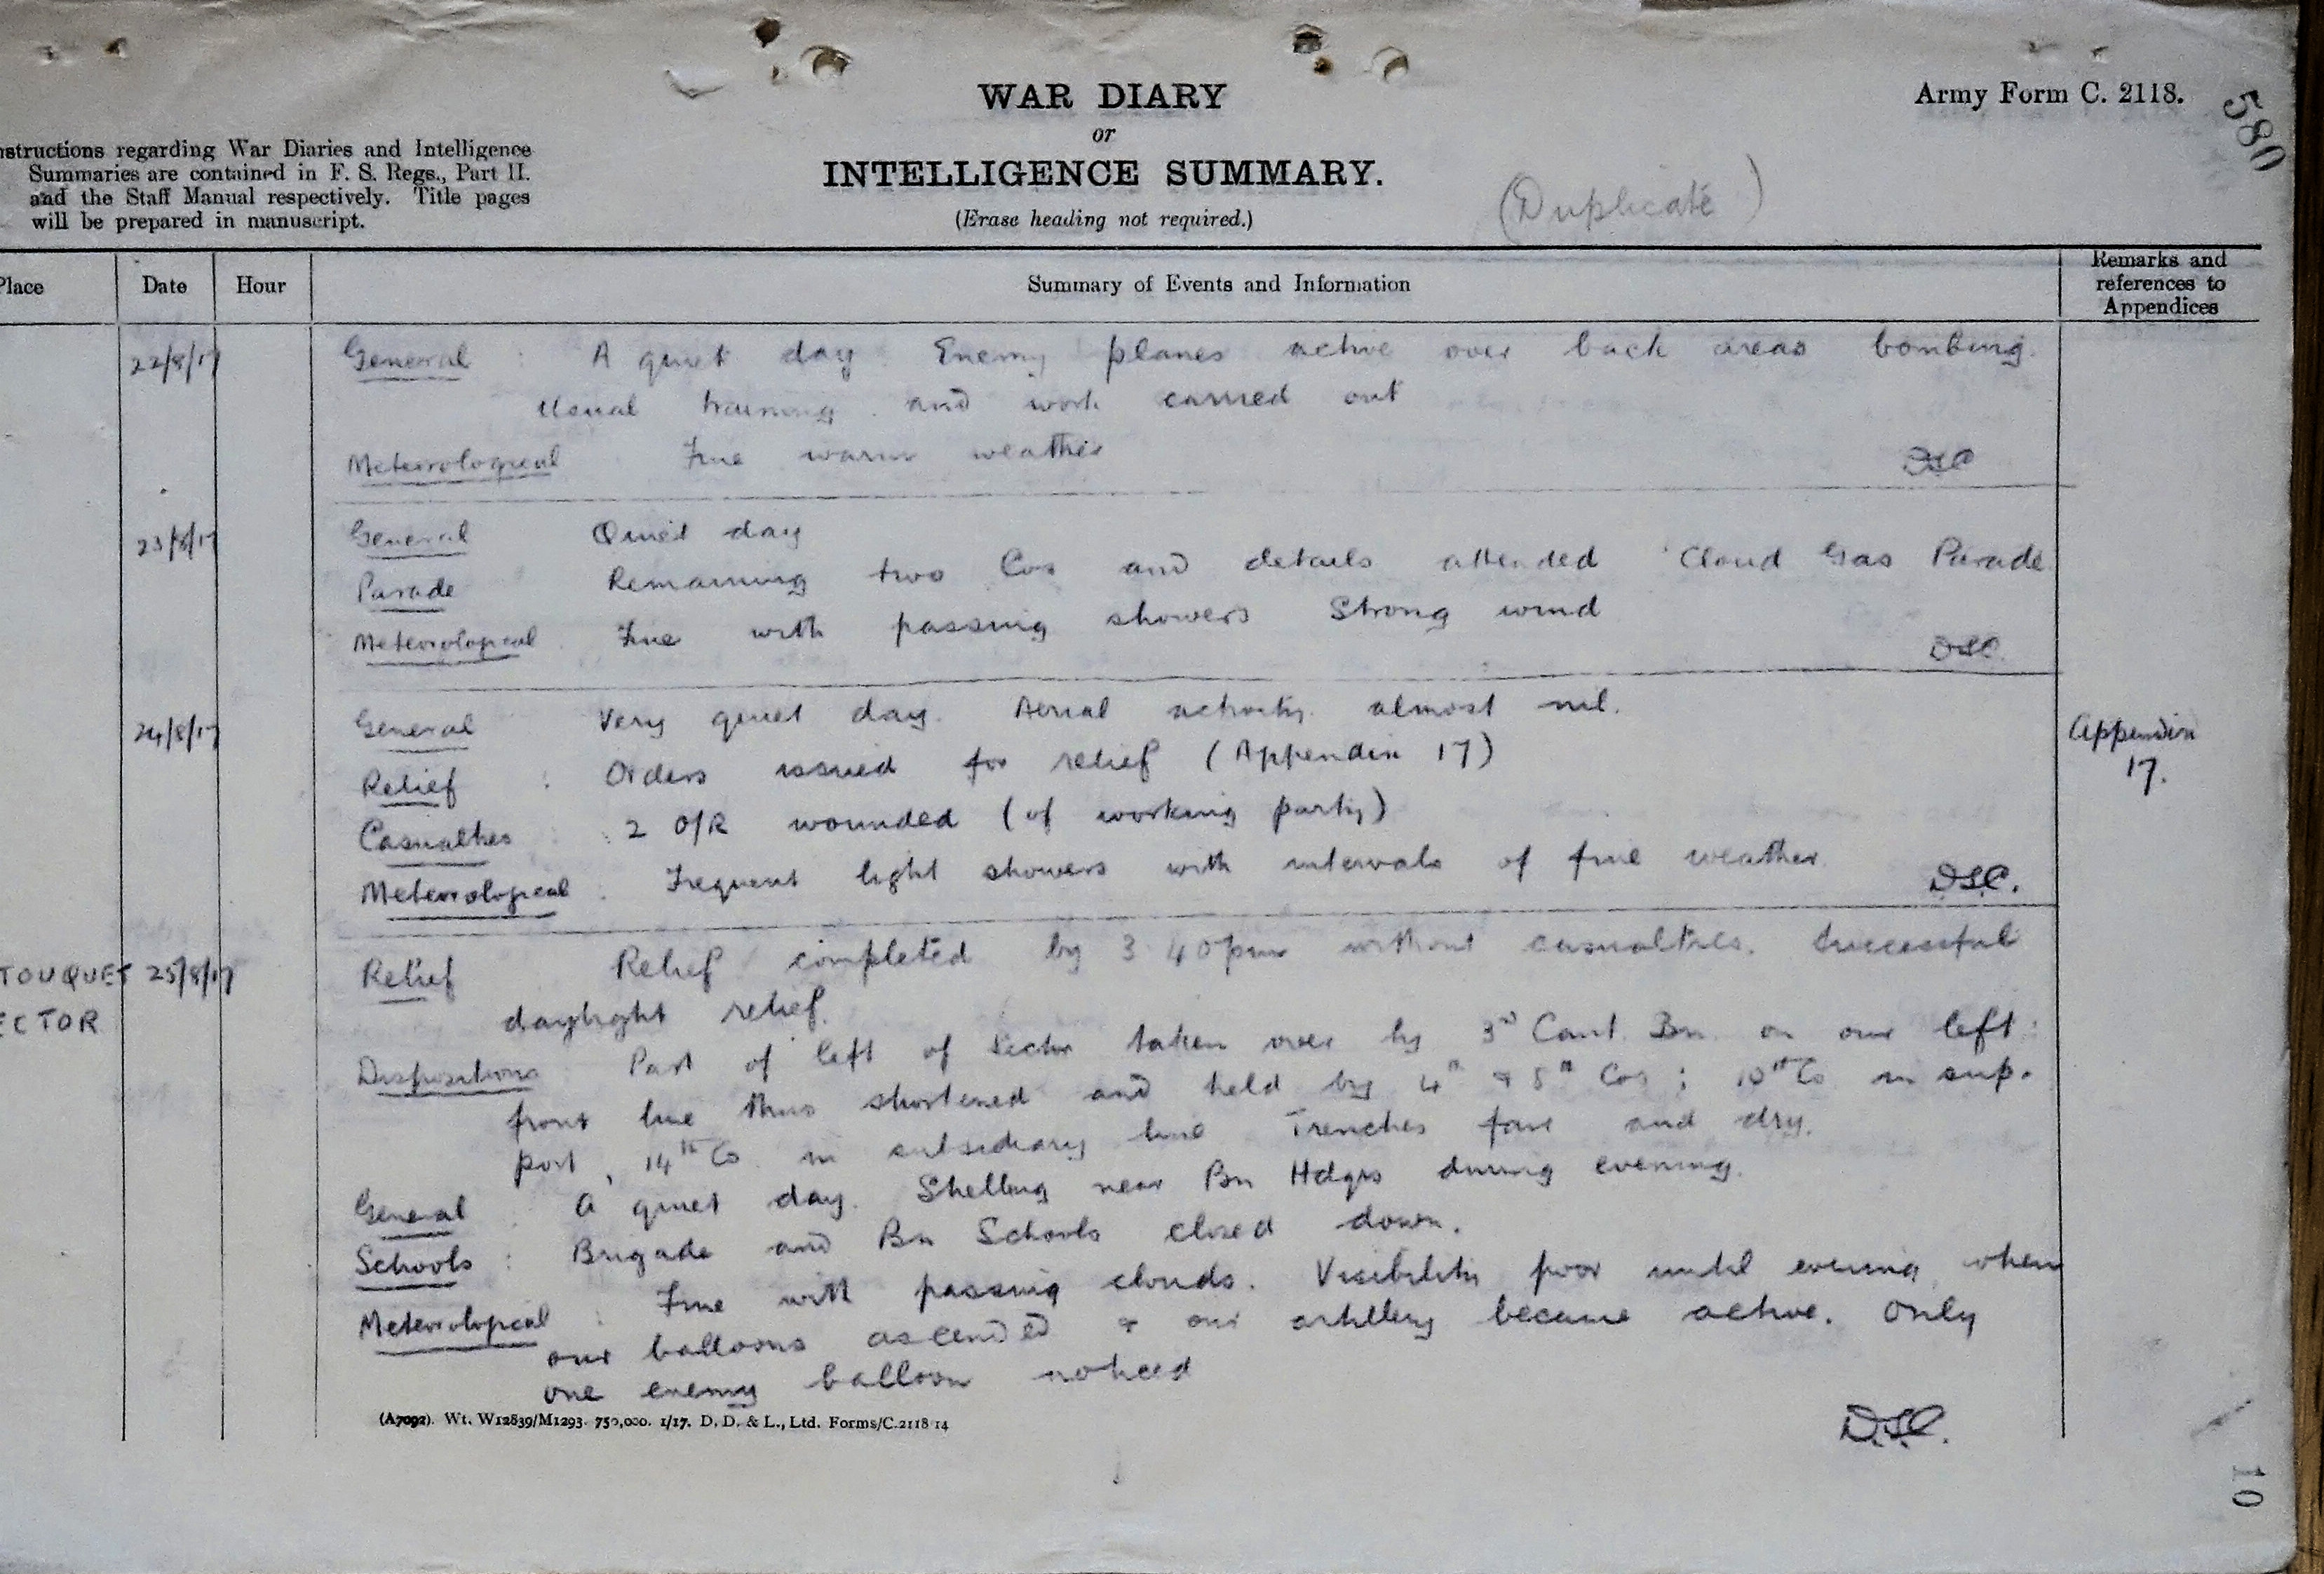 WAR DIARY
Army Form C. 2118.
580
or
INTELLIGENCE SUMMARY.
(Erase heading not required.)
(Duplicate)
nstructions regarding War Diaries and Intelligence
Summaries are contained in F. S. Regs., Part II.
and the Staff Manual respectively. Title pages
will be prepared in manuscript.
Place
Date
Hour
Summary of Events and Information
Remarks and
references to
Appendices
22/8/17
General : A quiet day. Enemy planes active over back areas bombing.
Usual training and work carried out
Meteorological Fine warm weather
DSC
23/8/17
General Quiet day
Parade Remaining two Cos and details attended 'Cloud Gas Parade
Meteorological Fine with passing showers Strong wind
DSC.
24/8/17
General Very quiet day. Aerial activity almost nil.
Relief : Orders issued for relief (Appendix 17)
Appendix
17.
Casualties : 2 O/R wounded (of working party)
Meteorological : Frequent light showers with intervals of fine weather.
D.S.C.
TOUQUET
ECTOR
25/8/17
Relief Relief completed by 3.40pm without casualties. Successful
daylight relief.
Dispositions Part of left of Sector taken over by 3rd Cant. Bn. on our left:
front line thus shortened and held by 4th & 8th Cos ; 10th Co in sup-
port, 14th Co in subsidiary line Trenches fair and dry.
General : A quiet day. Shelling near Bn Hdqrs during evening.
Schools : Brigade and Bn Schools closed down.
Meteorological : Fine with passing clouds. Visibility poor until evening when
our balloons ascended & our artillery became active. Only
one enemy balloon noticed
D.S.C.
(A7092). Wt. W12839/M1293. 750,000. 1/17. D. D. & L., Ltd. Forms/C.2118/14
10